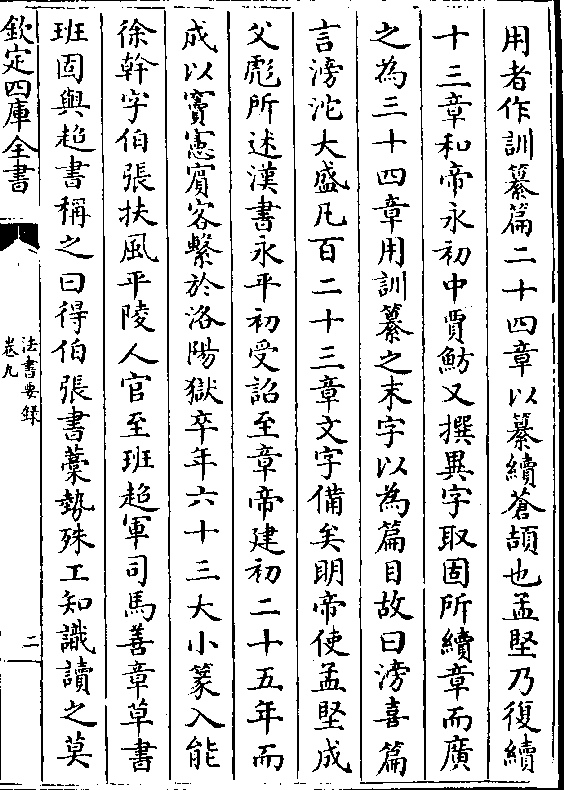 用者作訓纂篇二十四章以纂續蒼頡也孟堅乃復續
十三章和帝永初中賈魴又撰異字取固所續章而廣
之為三十四章用訓纂之末字以為篇目故曰滂喜篇
言滂沱大盛凡百二十三章文字備矣明帝使孟堅成
父彪所述漢書永平初受詔至章帝建初二十五年而
成以竇憲賓客繫於洛陽獄卒年六十三大小篆入能
徐幹字伯張扶風平陵人官至班超軍司馬善章草書
班固與超書稱之曰得伯張書藁勢殊工知識讀之莫
欽定四庫全書
法書要錄
卷九
二